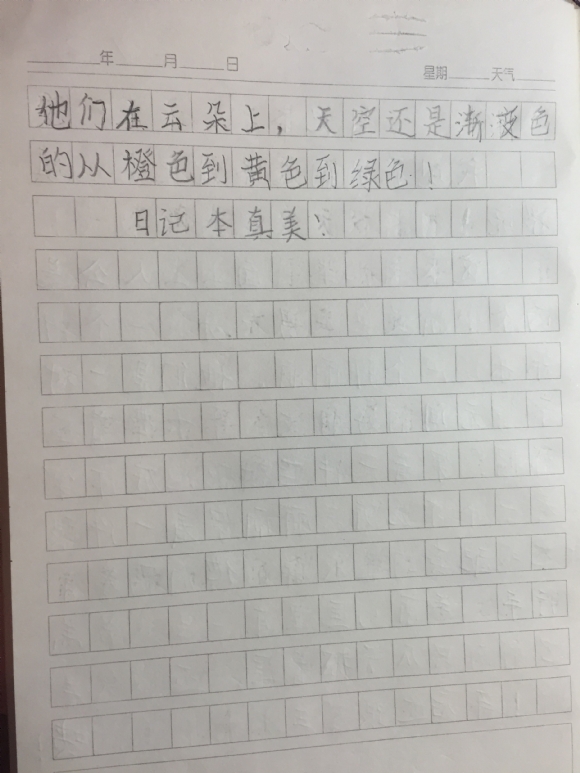 年 月 日
星期 天气
他们在云朵上，天空还是渐变色
的从橙色到黄色到绿色！
日记本真美！